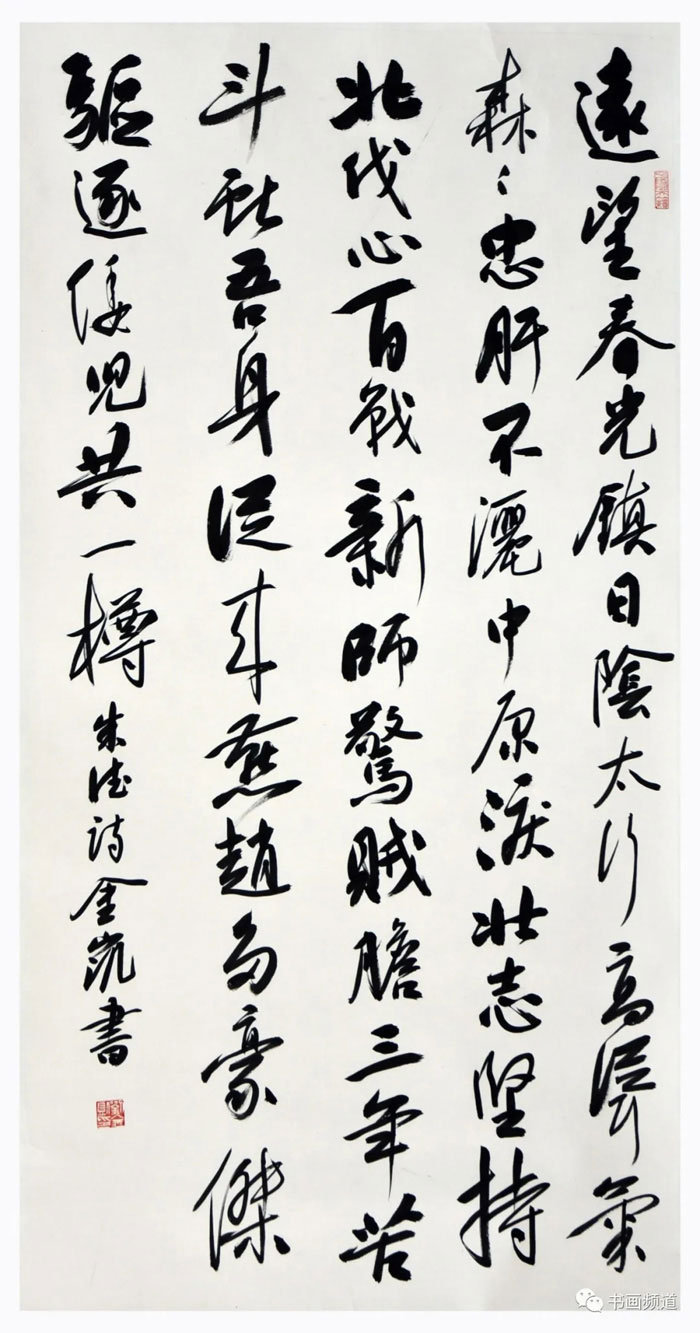 遠望春光鎮日陰太行高聳氣
森〻忠肝不灑中原淚壯志堅持
北伐心百戰新師驚賊膽三年苦
斗献吾身從來燕趙多豪傑
驅逐倭児共一樽 朱德詩金凯書
书画频道